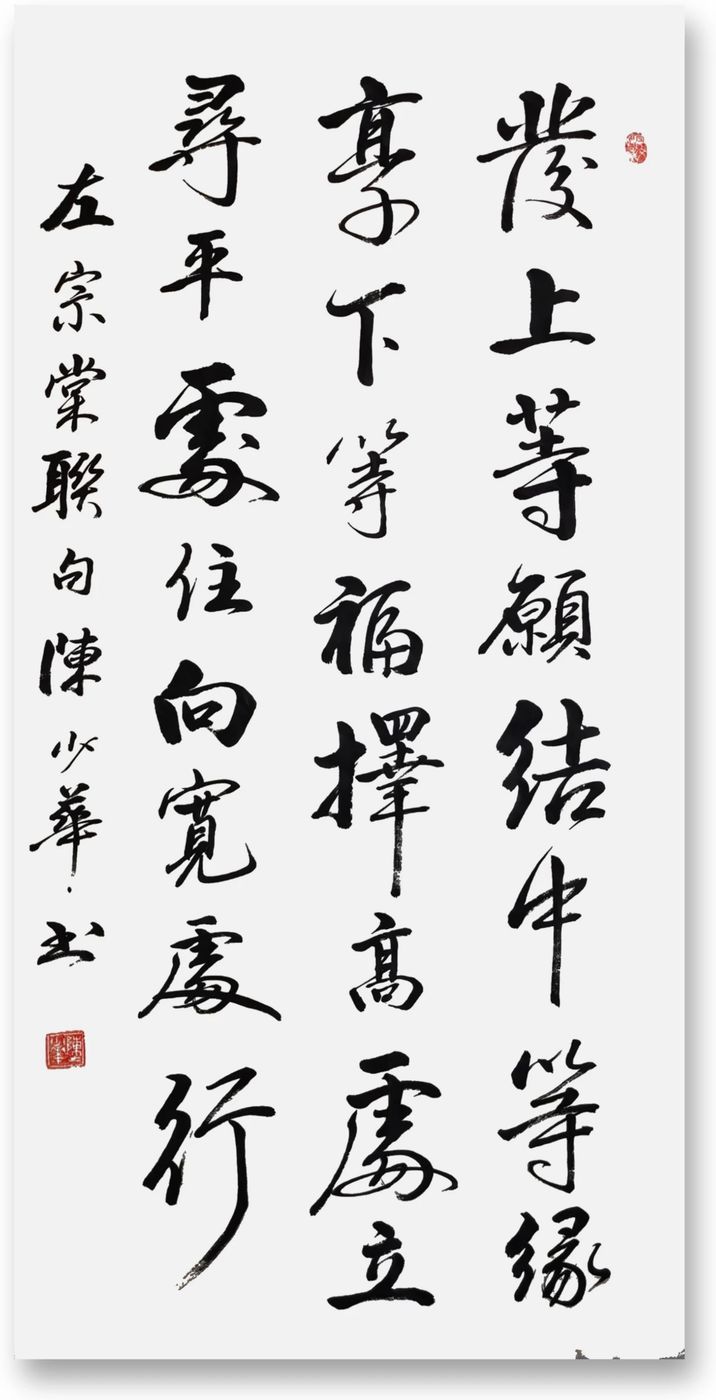 發上等願結中等緣
享下等福擇高處立
尋平處住向寬處行
左宗棠聯句陳少華書